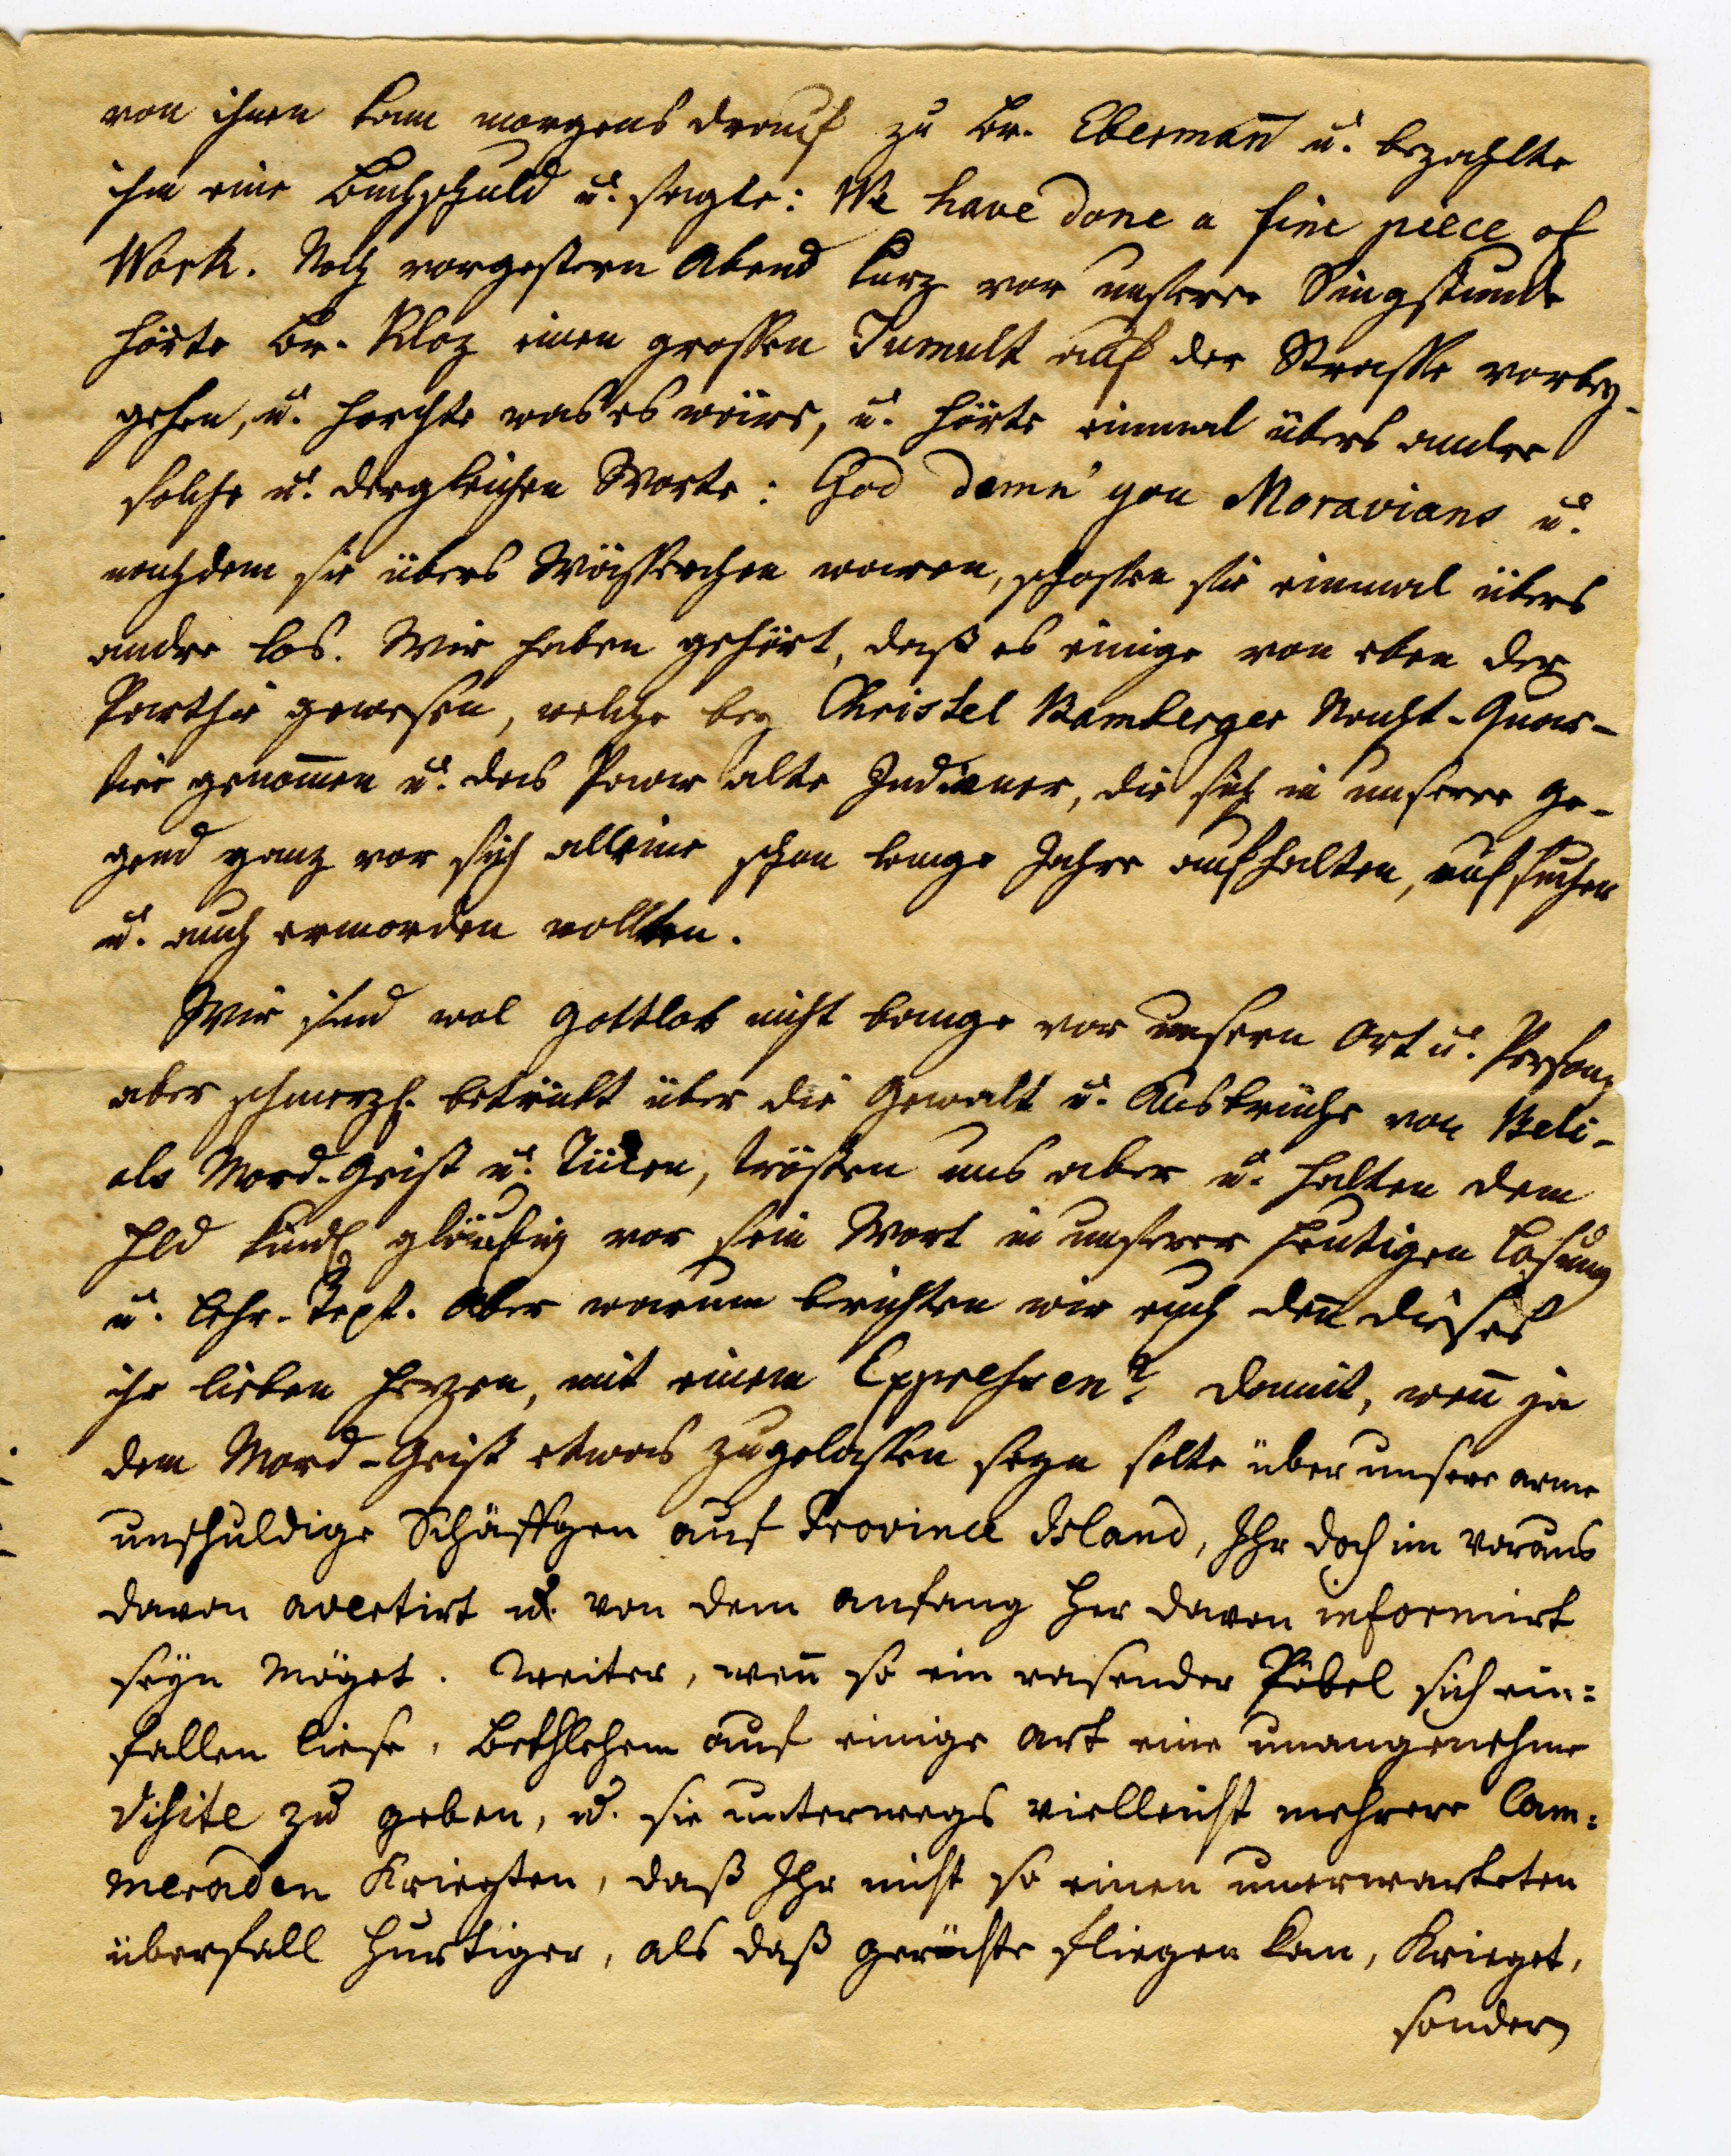 von ihnen kam morgens drauf zu Br. Ebermañ u. bezahlte
ihm eine Buchschuld u. sagte: We have done a fine piece of
Work. Noch vorgestern Abend kurz vor unserer Singstunde
hörte Br. Kloz einen grossen Tumult auf der Strasse vorbey-
gehen, u. horchte was es wäre, u. hörte einmal übers andre
solche u. dergleichen Worte: God damn' you Moravians u.
nachdem sie übers Wässerchen waren, schossen sie einmal übers
andre los. Wir haben gehört, daß es einige von eben der
Parthie gewesen, welche bey Christel Bamberger Nacht-Quar-
tier genom̄en u. das Paar alte Indianer, die sich in unserer Ge-
gend ganz vor sich alleine schon lange Jahre aufhalten, aufsuchen
u. auch ermorden wollten.
Wir sind wol Gottlob nicht bange vor unsern Ort u. Person,
aber schmerzl. betrübt über die Gewalt u. Ausbrüche von Beli-
als Mord-Geist u. Tücken, trösten uns aber u. halten dem
Hld kindl. gläubig vor sein Wort in unserer heutigen Losung
u. Lehr-Text. Aber warum berichten wir euch deñ dieses
ihr lieben Herzen, mit einem Expressen? Damit, weñ ja
dem Mord-Geist etwas zugelassen seyn solte über unsere arme
unschuldige Schäffgen auf Province Island, Ihr doch im voraus
davon avertirt u. von dem anfang her davon informirt
seyn möget. Weiter, weñ so ein rasender Pöbel sich ein=
fallen liese, Bethlehem auf einige Art eine unangenehme
Visite zu geben, u. sie unterwegs vielleicht mehrere Cam=
meraden kriegten, daß Ihr nicht so einen unerwarteten
überfall hurtiger, als daß gerüchte fliegen kan, krieget,
sondern